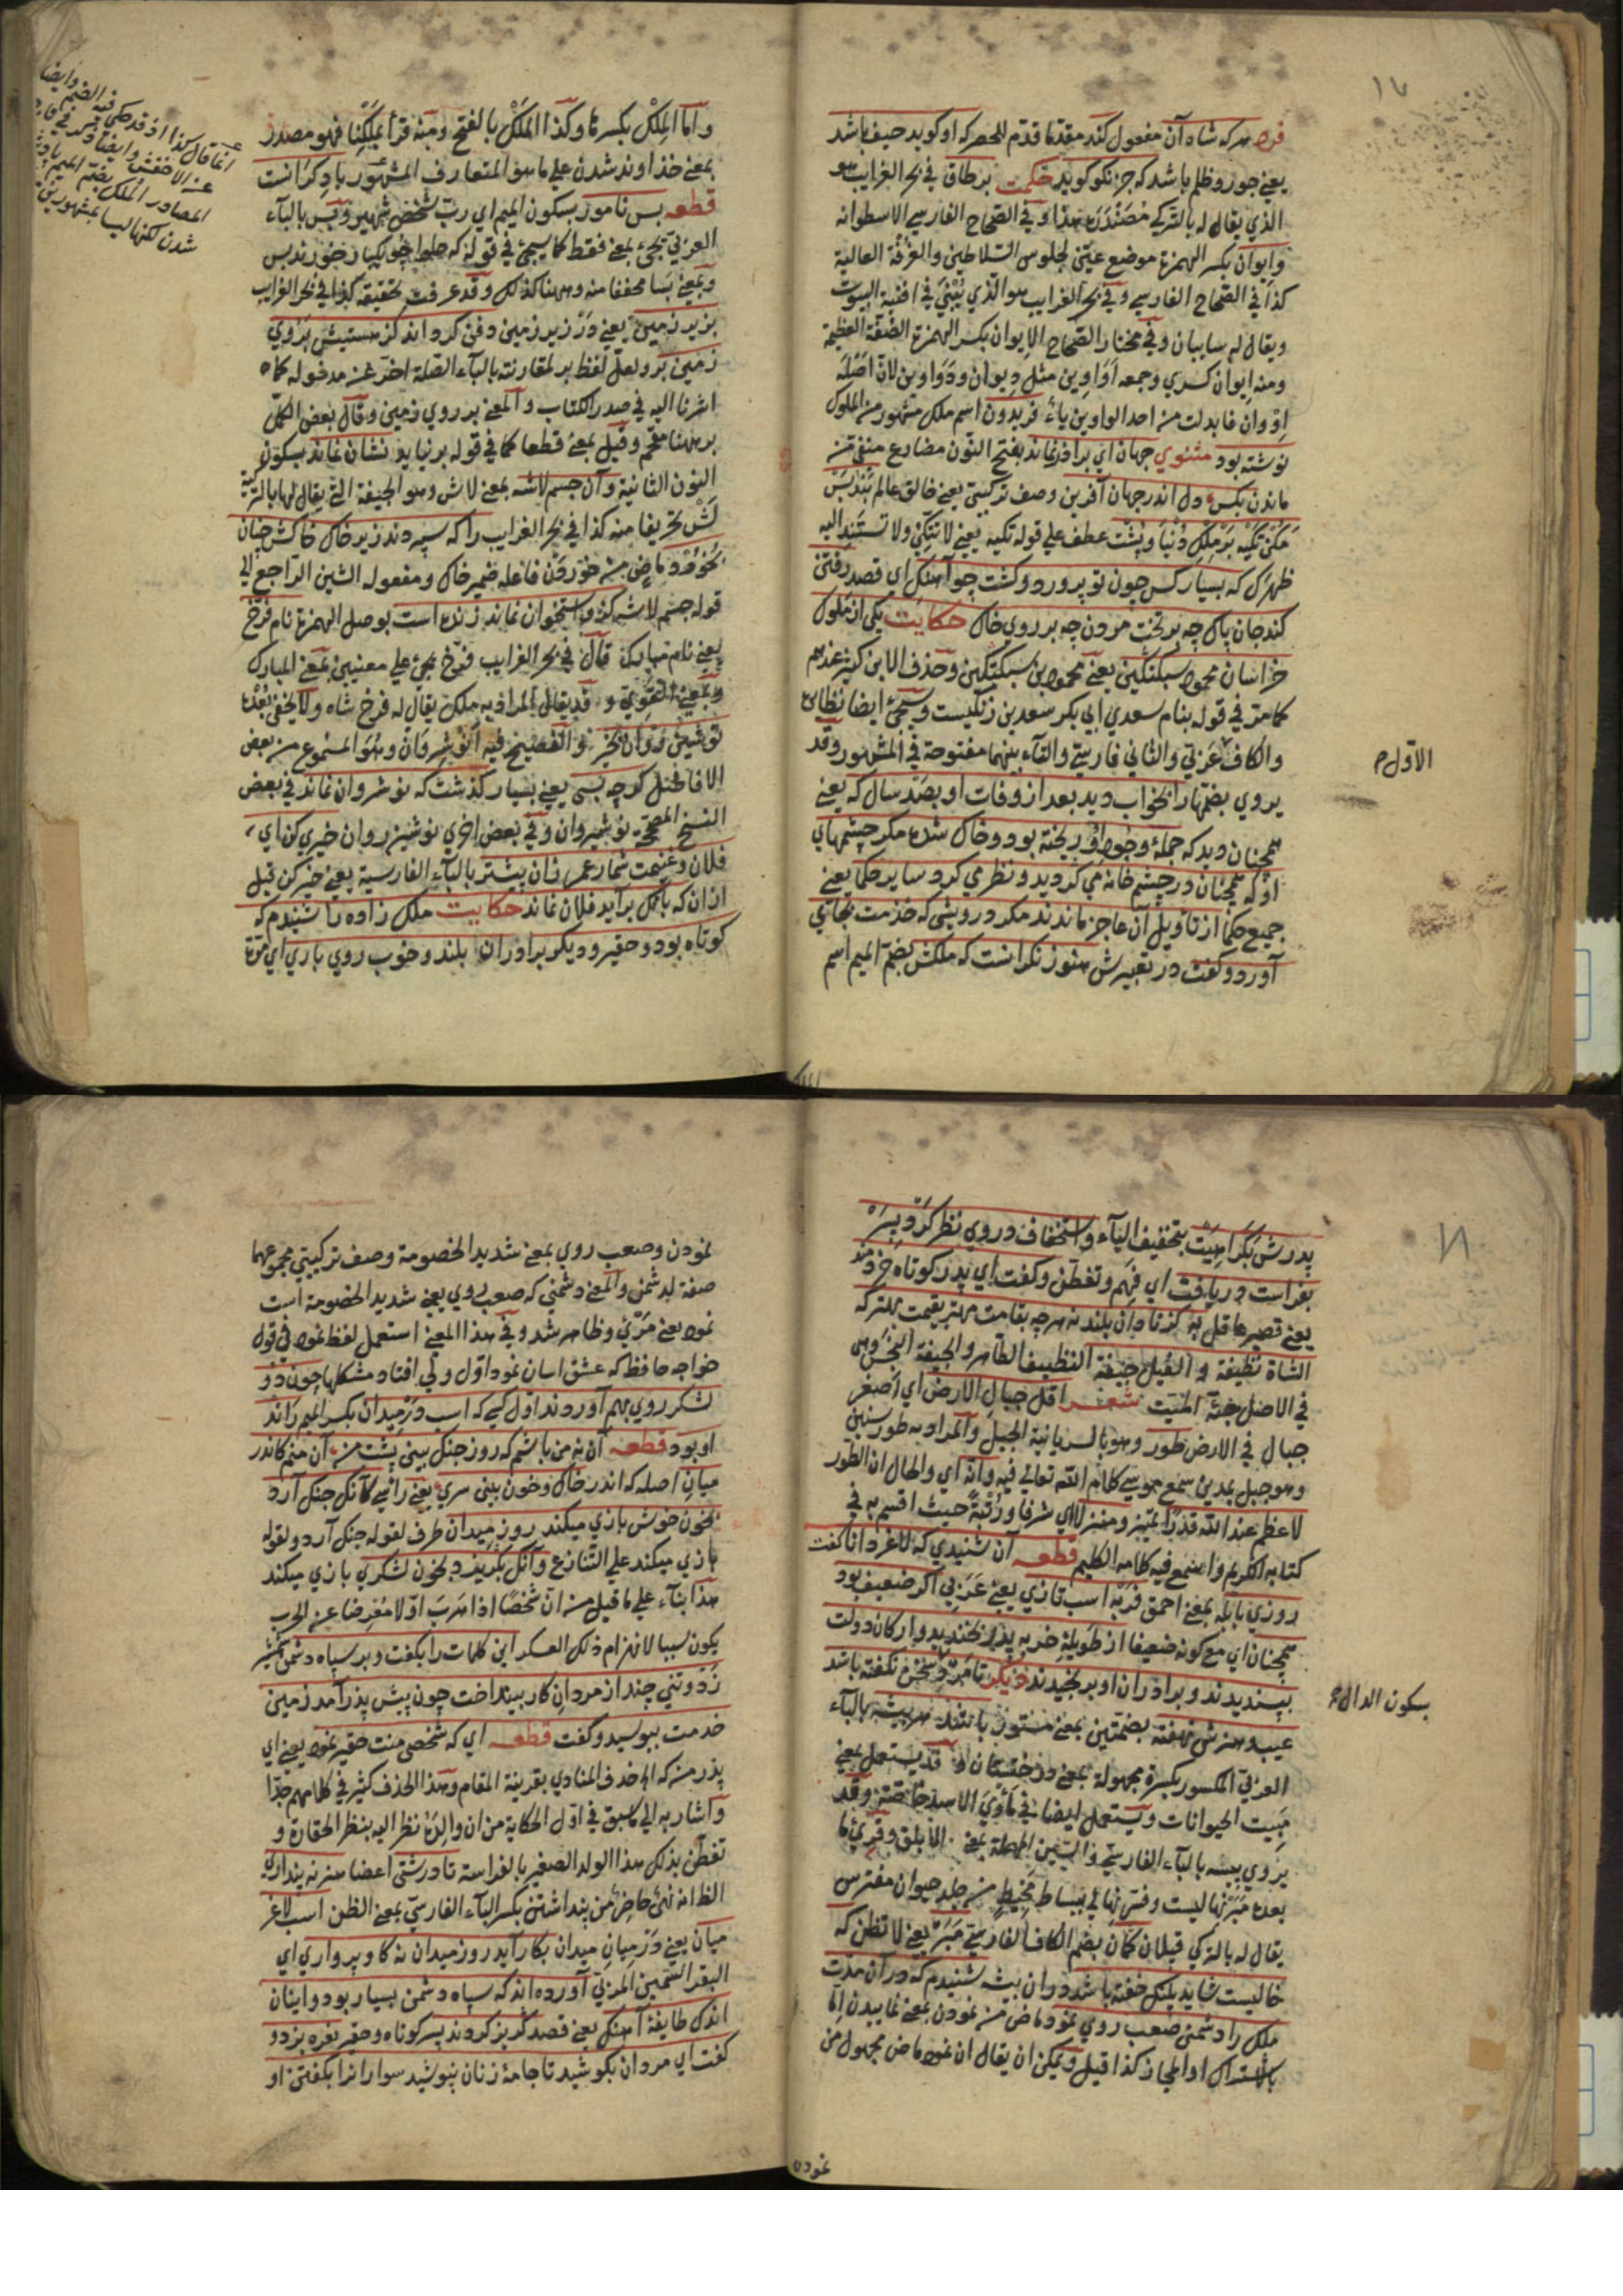 ١٧
فرد هر که شاه آن مفعول کند مقدما قدم للحصر که او کوید حیف باشد
یعنی جور وظلم باشد که جز نکو کوید حکمت بر طاق فی بحر الغرایب هو
الذی یقال له بالترکی هذا وفی الصحاح الفارسی الاسطوانه
وایوان بکسر الهمزة موضع عیّن لجلوس السلاطین والغرفة العالیة
کذا فی الصحاح الفارسی وفی بحر الغرایب هو الذی یُبنی فی افنیة البیوت
ویقال له سایبان وفی مختار الصحاح الایوان بکسر الهمزة الصفّة العظیمة
ومنه ایوان کسری وجمعه اواوین مثل دیوان ودواوین لان اصله
اِوّوان فابدلت من احد الواوین یاء فریدون اسم ملک مشهور من الملوک
نوشته بود مثنوی جهان ای برادر نماند بفتح النون مضارع منفی من
ماندن بکس دل اندر جهان آفرین وصف ترکیبی یعنی خالق عالم بند بس
مکن تکیه بر ملک دنیا و پشت عطف علی قوله تکیه یعنی لا تتکئ ولا تستند الیه
ظهرک که بسیار کس چون تو پرورد و کشت چو آهنک ای قصد رفتن
کند جان پاک چه بر تخت مردن چه بر روی خاک حکایت یکی از ملوک
خراسان محمود سبکتکین یعنی محمود بن سبکتکین وحذف الابن کثیر عندهم
کما مر فی قوله بنام سعدی ابی بکر سعد بن زنکیست وسیجئ ایضا نظایره
والکاف الاول عربی والثانی فارسی والتاء بینهما مفتوحة فی المشهور وقد
یروی بضمها را بخواب دید بعد از وفات او بصد سال که یعنی
همچنان دید که جملهٔ وجود او ریخته بود و خاک شده مکر چشمهای
او که همچنان در چشم خانه می کردید و نظر می کرد سایر حکما یعنی
جمیع حکما از تاویل آن عاجز ماندند مکر درویشی که خدمت بجای
آورد و کفت در تعبیرش هنوز نکرانست که ملکش بضم المیم اسم
واما المِلک بکسرها وکذا المَلک بالفتح ومنه قرأ بملکنا فهو مصدر
بمعنی خداوند شدن علی ما هو المتعارف المشهور با دکرانست
قطعه بس نامور بسکون المیم ای ربّ شخص شهیر وبس بالباء
العربی یجئ بمعنی فقط کما سیجئ فی قوله که حلوا چو یکبار خوردند بس
وبمعنی بسا مخففا منه وههنا کذلک وقد عرفت تحقیقه کذا فی بحر الغرایب
بزیر زمین یعنی در زیر زمین دفن کرده اند کز هستیش بروی
زمین بر ولعل لفظ بر لمقارنته بالباء الصلة اخّر عن مدخوله کما
اشرنا الیه فی صدر الکتاب والمعنی بر روی زمین وقال بعض الکمّل
بر ههنا مقحم وقیل بمعنی قطعا کما فی قوله بر نیاید نشان نماند بسکون
النون الثانیة وآن جسم لاشه بمعنی لاش وهو الجیفة التی یقال لها بالترکیة
لش تحریفا منه کذا فی بحر الغرایب را که سپردند زیر خاک خاکش چنان
بخورد ماض من خوردن فاعله ضمیر خاک ومفعوله الشین الراجع الی
قوله جسم لاشه کزو استخوان نماند زنده است بوصل الهمزة نام فرّخ
یعنی نام مبارک قال فی بحر الغرایب فرّخ یجئ علی معنیین بمعنی المبارک
وبمعنی القوی وقد یقال المراد به ملک یقال له فرخ شاه ولا یخفی بُعده
نوشین روان بخیر والفصیح فیه انوشروان وهو المسموع من بعض
الافاضل کرچه بسی یعنی بسیار کذشت که نوشروان نماند فی بعض
النسخ المصححة نوشیروان وفی بعض اخری نوشین روان خیری کن ای
فلان وغنیمت شمار عمر زان پیشتر بالباء الفارسیة یعنی خیر کن قبل
ازان که بانک برآید فلان نماند حکایت ملک زاده را شنیدم که
کوتاه بود و حقیر و دیکر برادران بلند و خوب روی باری ای مرة
انما قال کذا اذ قد حکی فیه الضم وایضا
عن الاخفش وایضا
المصادر الملک بضم المیم پادشاه
شدن لکنها لیسا بمشهورین
پدرش بکراهیت بتخفیف الیاء واستخفاف در وی نظر کرد پسر
بفراست دریافت ای فهم وتفطّن وکفت ای پدر کوتاه خردمند
یعنی قصیر عاقل به کز نادان بلند نه هرچه بقامت مهتر بقیمت بهتر که
الشاة نظیفة والفیل جیفة النظیف الطاهر والجیفة النجس وهی
فی الاصل جثة المیت شعر اقل جبال الارض ای اصغر
جبال فی الارض طور وهو بالسریانیة الجبل والمراد به طور سینین
وهو جبل بمدین سمع موسی کلام الله تعالی فیه وانه ای والحال ان الطور
لاعظم عند الله قدرا تمیّز ومنزلا ای شرفا ورتبة حیث اقسم به فی
کتابه الکریم واسمع فیه کلامه الکلیم قطعه آن شنیدی که لاغر دانا کفت
روزی بابله بمعنی احمق فربه اسب تازی یعنی عربی اکر ضعیف بود
همچنان ای مع کونه ضعیفا از طویلهٔ خر به پدر بخندید وارکان دولت
بپسندیدند وبرادران او برنجیدند دیکر تا مرد سخن نکفته باشد
عیب وهنرش نهفته بضمتین بمعنی مستور باشد هر بیشه بالباء
بسکون الدال
العربی المکسور بکسرة مجهولة بمعنی درختستان قد یستعمل بمعنی
مبیت الحیوانات ویستعمل ایضا فی مأوی الاسد خاصة وقد
یروی پیسه بالباء الفارسی والسین المهملة بمعنی الابلق وقرئ ما
بعده مبر نهالیست وفسر نهالی ببساط مخیط من جلد حیوان مفترس
یقال له بالترکی قپلان کمان بضم الکاف الفارسی مبر یعنی لا تظن که
خالیست شاید پلنک خفته باشد دران بیشه شنیدم که در آن مدت
ملک را دشمن صعب روی نمود ماض من نمودن بمعنی نماییدن اما
بالاشتراک او المجاز کذا قیل ویمکن ان یقال ان نمود ماض مجهول من
نمودن وصعب روی بمعنی شدید الخصومة وصف ترکیبی مجموعهما
صفة لدشمن والمعنی دشمنی که صعب روی یعنی شدید الخصومة است
نمود یعنی مرئی وظاهر شد وفی هذا المعنی استعمل لفظ نمود فی قول
خواجه حافظ که عشق آسان نمود اول ولی افتاد مشکلها چون دو
لشکر روی بهم آوردند اول کسی که اسب در میدان بکسر المیم راند
او بود قطعه آن نه من باشم که روز جنک بینی پشت من آن منم کاندر
میان اصله که اندر خاک وخون بینی سری یعنی زانکه کانکه جنک آرد
بخون خویش بازی میکند روز میدان ظرف لقوله جنک آرد ولقوله
بازی میکند علی التنازع وآنکه بگریزد بخون لشکری بازی میکند
هذا بناء علی ما قیل من ان شخصا اذا هرب اولا معرضا عن الحرب
یکون سببا لانهزام ذلک العسکر این کلمات را بکفت وبر سپاه دشمن
زد وتنی چند از مردان کار بینداخت چون پیش پدر آمد زمین
خدمت ببوسید وکفت قطعه ای که شخص منت حقیر نمود یعنی ای
پدر من که الخ حذف المنادی بقرینة المقام وهذا الحذف کثیر فی کلامهم جدا
واشار به الی ما سبق فی اول الحکایة من ان والده نظر الیه بنظر الحقارة و
تفطّن بذلک هذا الولد الصغیر بالفراسة تا درشتی اعضا هنر نپنداری
الظاهر انه نهی حاضر من پنداشتن بکسر الباء الفارسی بمعنی الظن اسب لاغر
میان یعنی در میان میدان بکار آید روز میدان نه کاو پرواری ای
البقر السمین المربّی آورده اند که سپاه دشمن بسیار بود واینان
اندک طایفهٔ آهنک یعنی قصد کریز کردند پسر کوتاه وحقیر نعره بزد و
کفت ای مردان بکوشید تا جامهٔ زنان بپوشید سوارانرا بکفتن او
نمودن